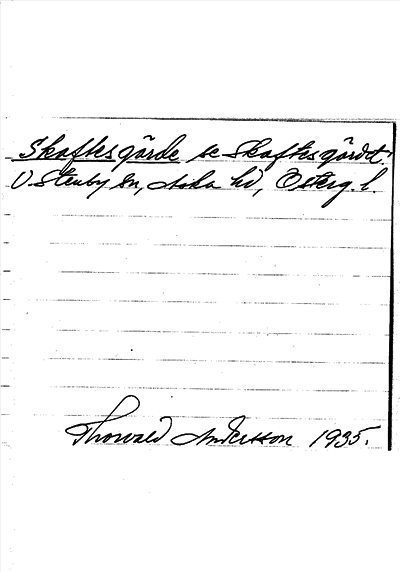 Skaftesgärde se Skaftesgärdet.
V. Stenby sn, Aska hd, Österg. l.
Thorvald Andersson 1935.